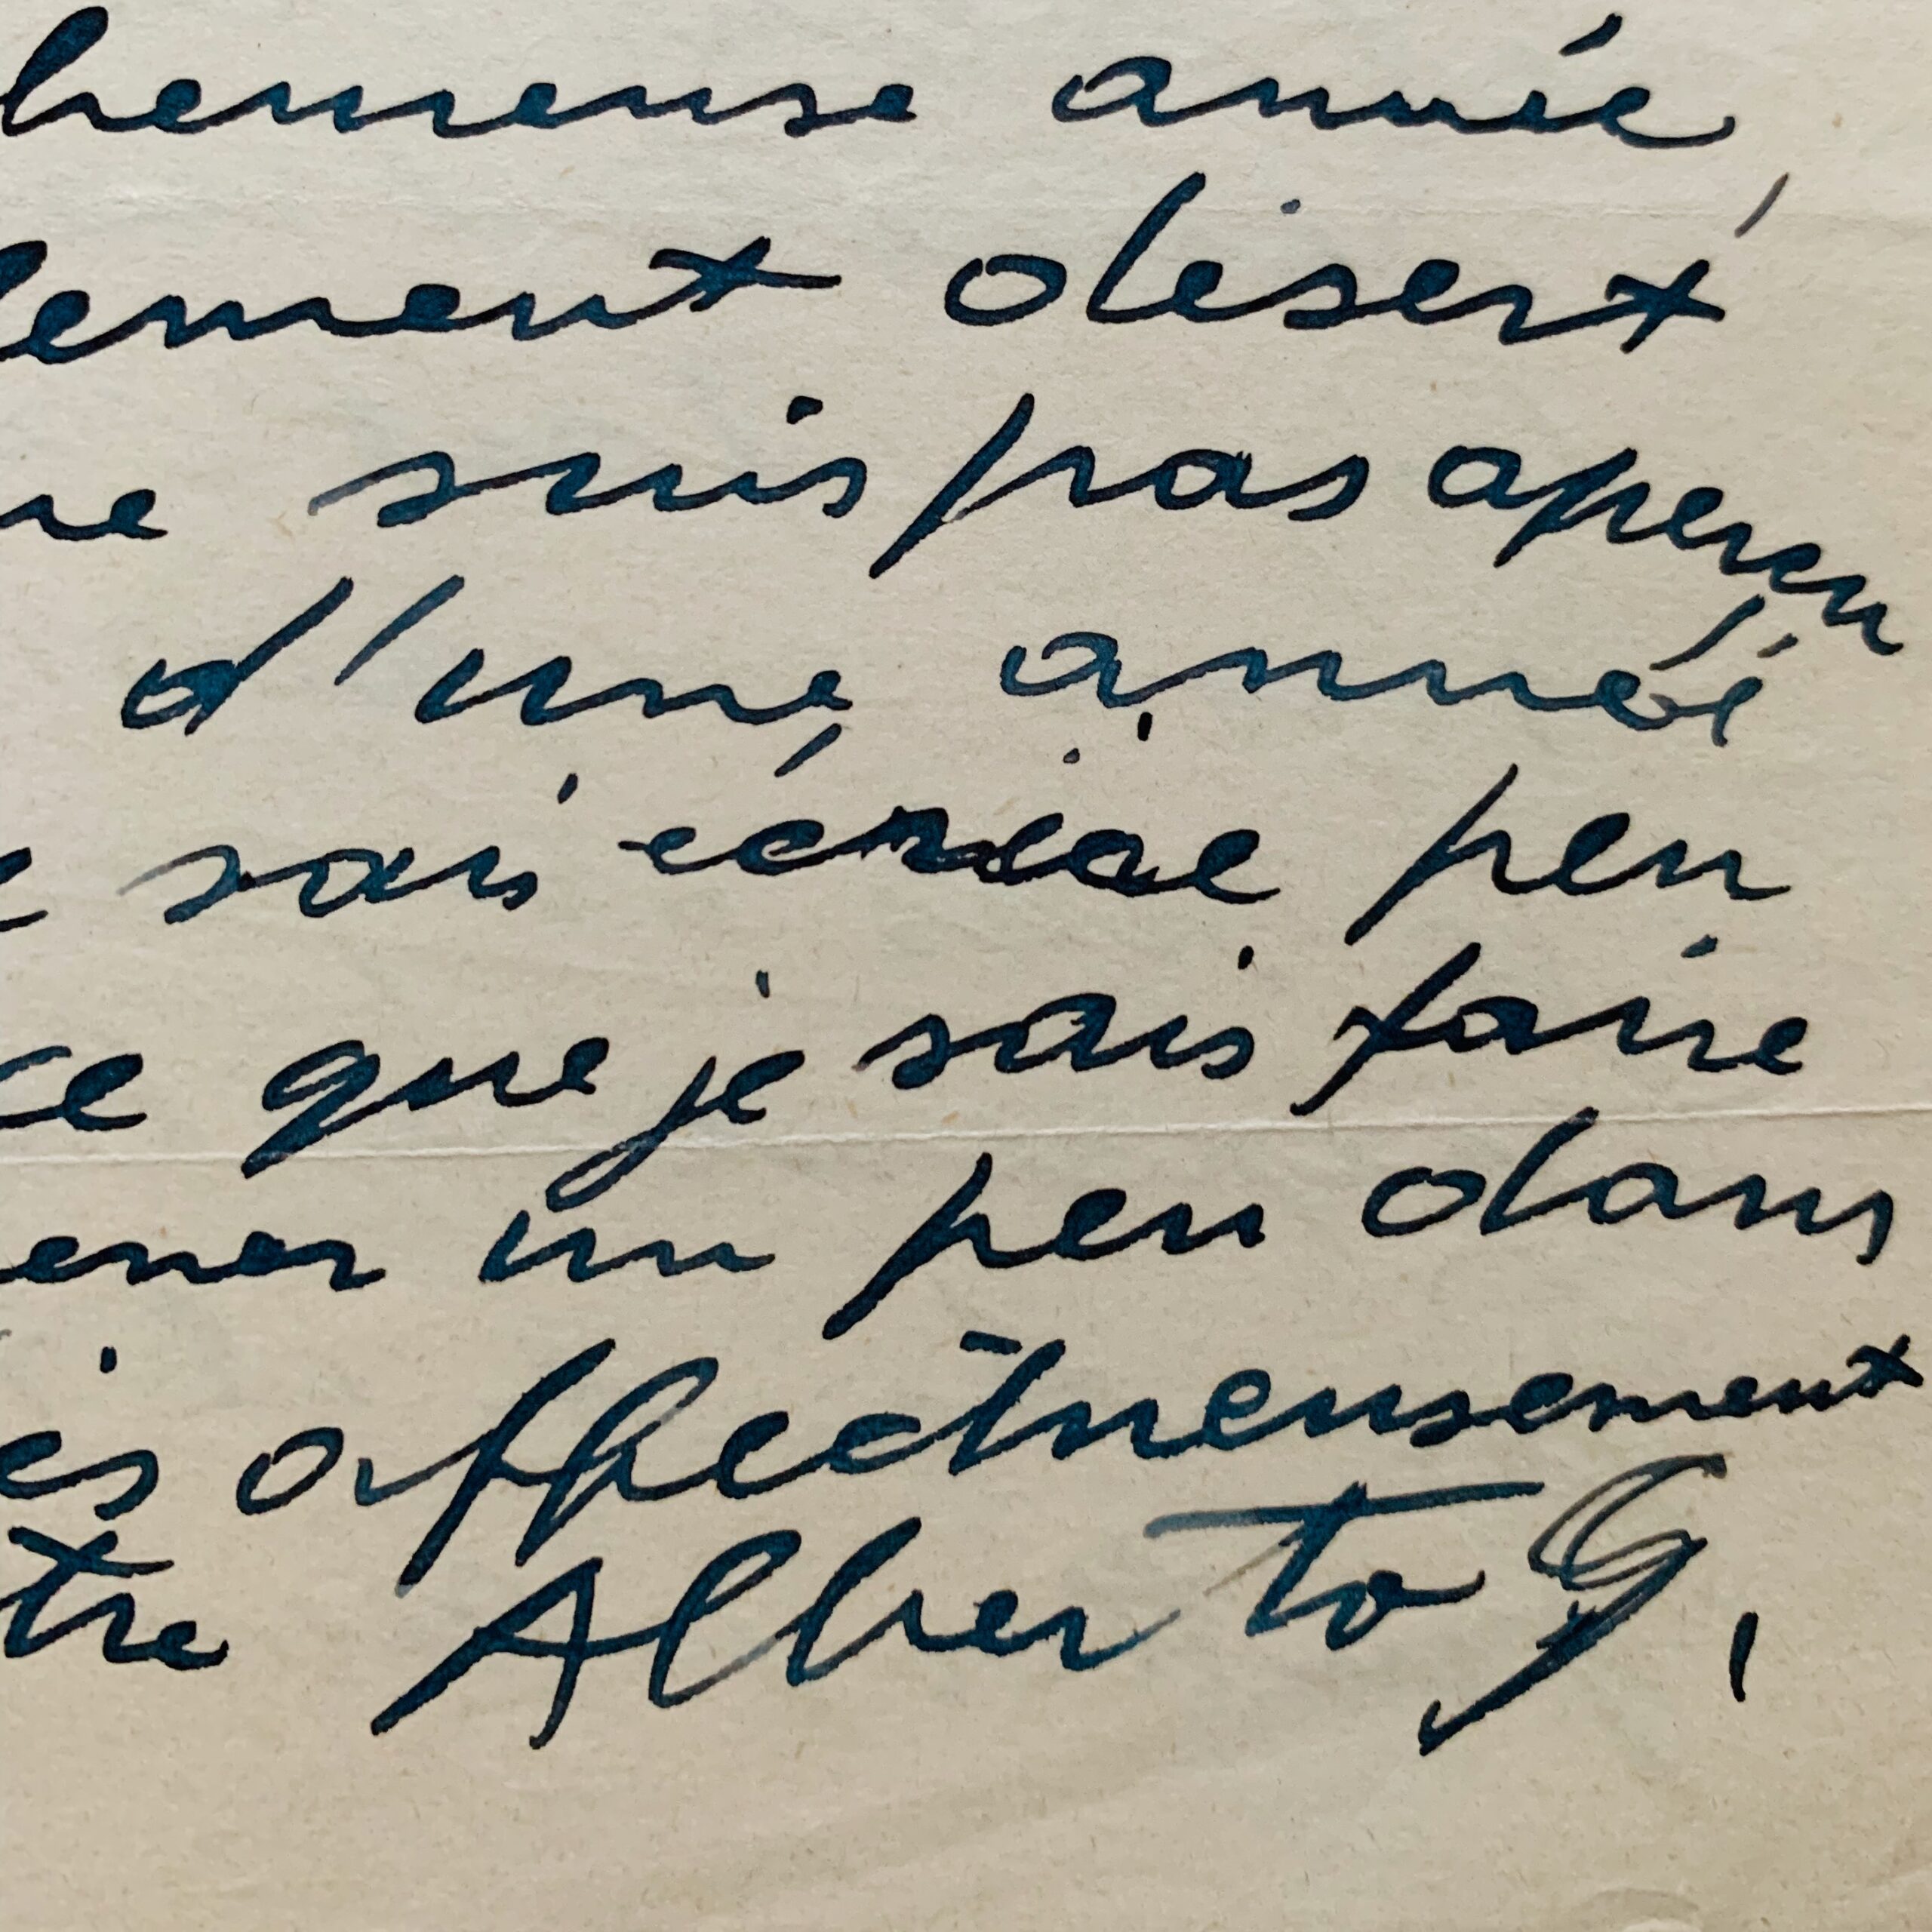 heureuse année,
lement désert
me suis pas aperçu
d'une année
sais écrire peu
ce que je sais faire
ener un peu dans
ès affectueusement
tre Alberto G.